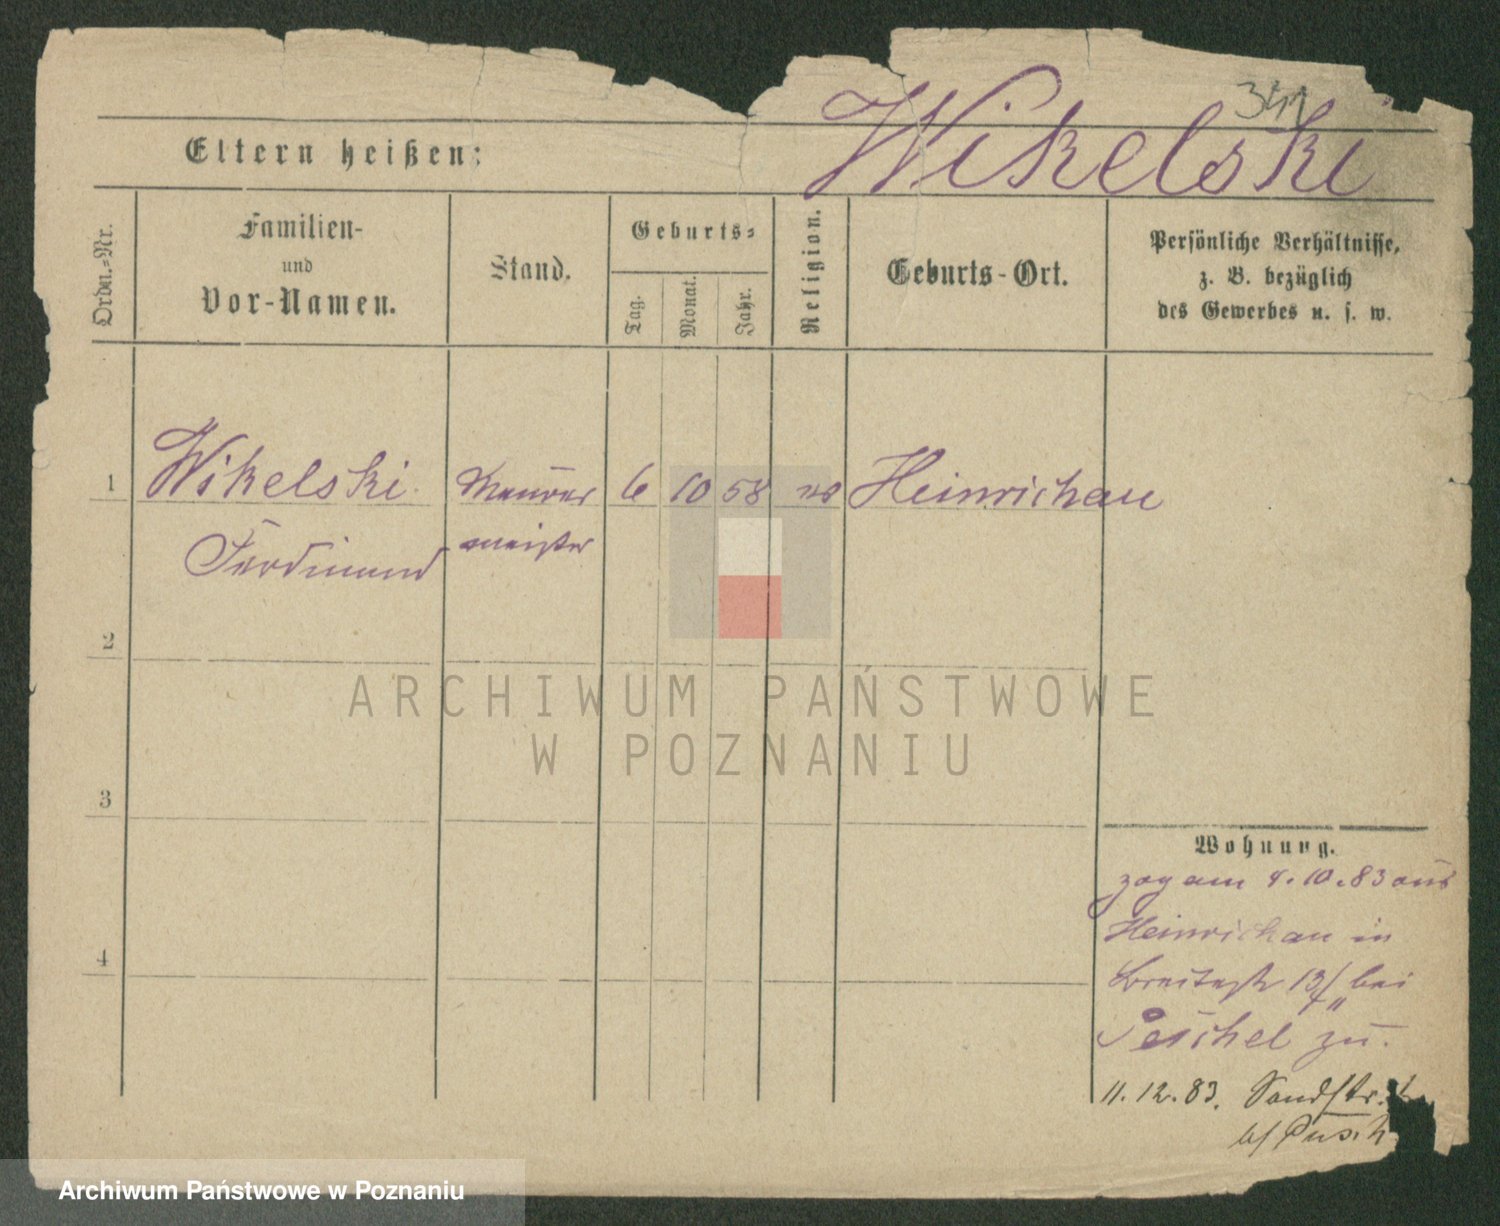 Wikelski
Eltern heißen:
Ordn.=Nr.
Familien-
und
Vor-Namen.
Stand.
Geburts=
Tag.
Monat.
Jahr.
Religion.
Geburts-Ort.
Persönliche Verhältnisse,
z. B. bezüglich
des Gewerbes u. s. w.
1 Wikelski Maurer 6 10 58 Heinrichau
Ferdinand meister
2
3
4
Wohnung.
zog am 4.10.83 aus
Heinrichau in
Breitestr 13/ bei
Peschel zu.
11.12.83. Sandstr.
b/ Pusch
ARCHIWUM PAŃSTWOWE
W POZNANIU
Archiwum Państwowe w Poznaniu